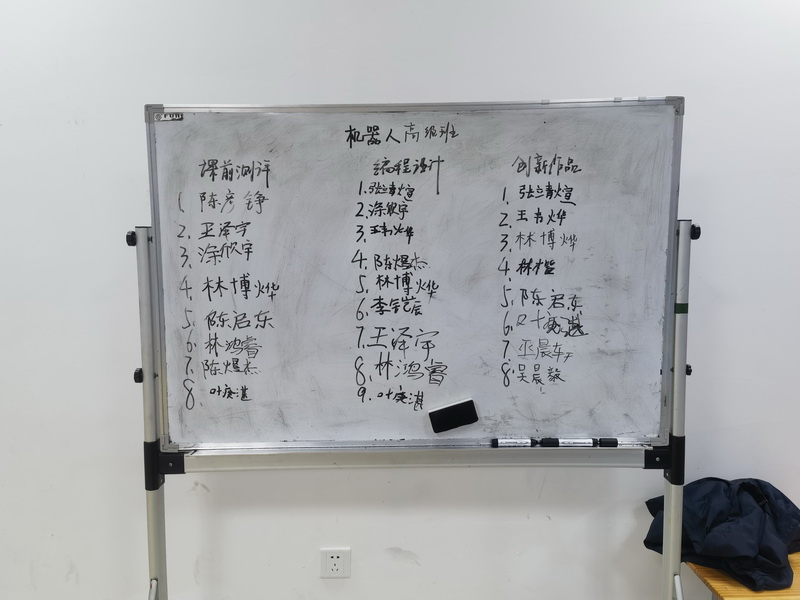 机器人高级班
课前测评
1 陈彦铮
2. 王泽宇
3. 涂欣宇
4. 林博烨
5. 陈启东
6. 林鸿睿
7. 陈煜杰
8. 叶庚湛
编程设计
1. 张清煊
2. 涂欣宇
3. 王韦烨
4. 陈煜杰
5. 林博烨
6. 辰
7. 王泽宇
8. 林鸿睿
9. 叶庚湛
创新作品
1. 张清煊
2. 王韦烨
3. 林博烨
4. 林
5. 陈启东
6.
7. 晨
8. 吴晨毅